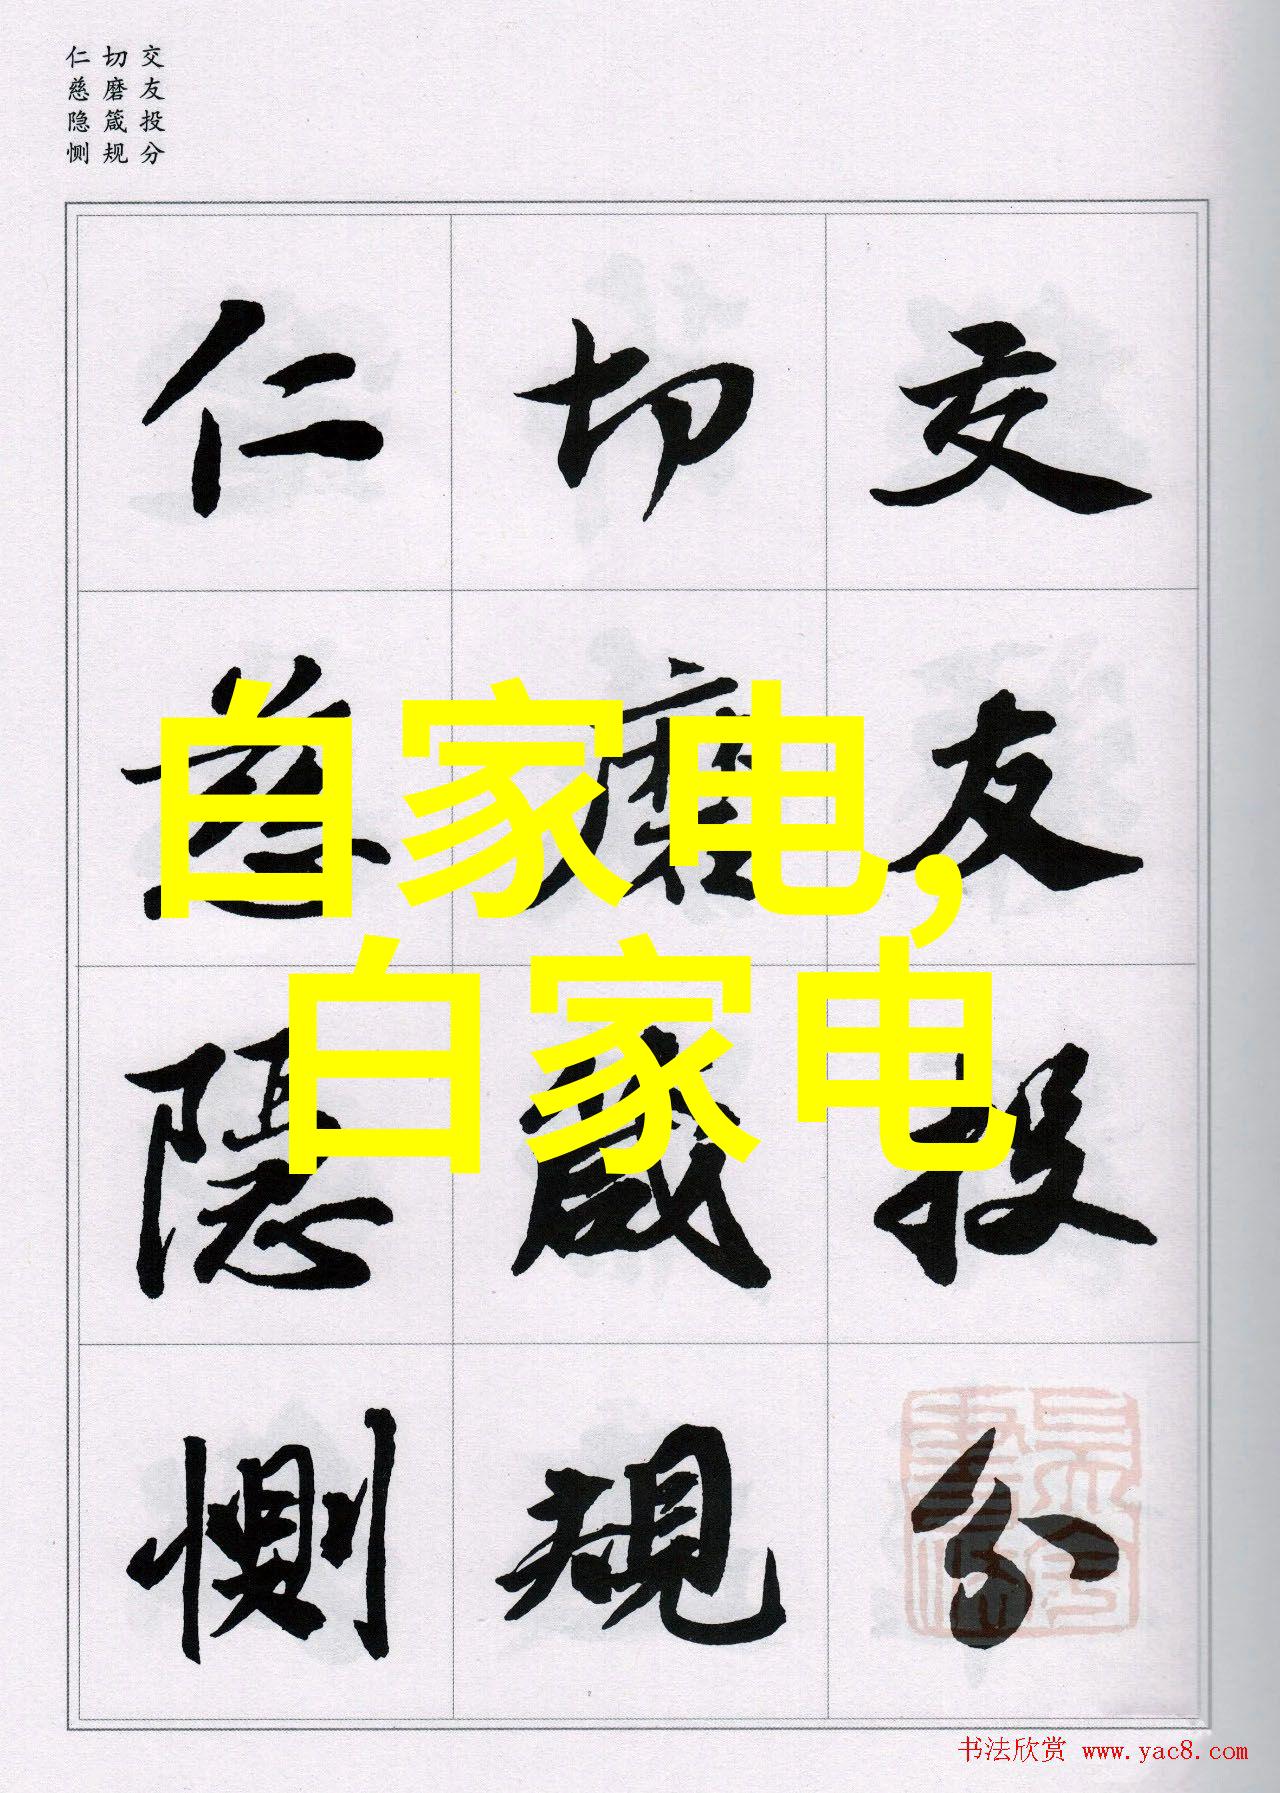 交友投分
切磨箴规
仁慈隐恻
交友投分
切磨箴規
仁慈隱惻
自家电,
白家电
书法欣赏 www.yac8.com